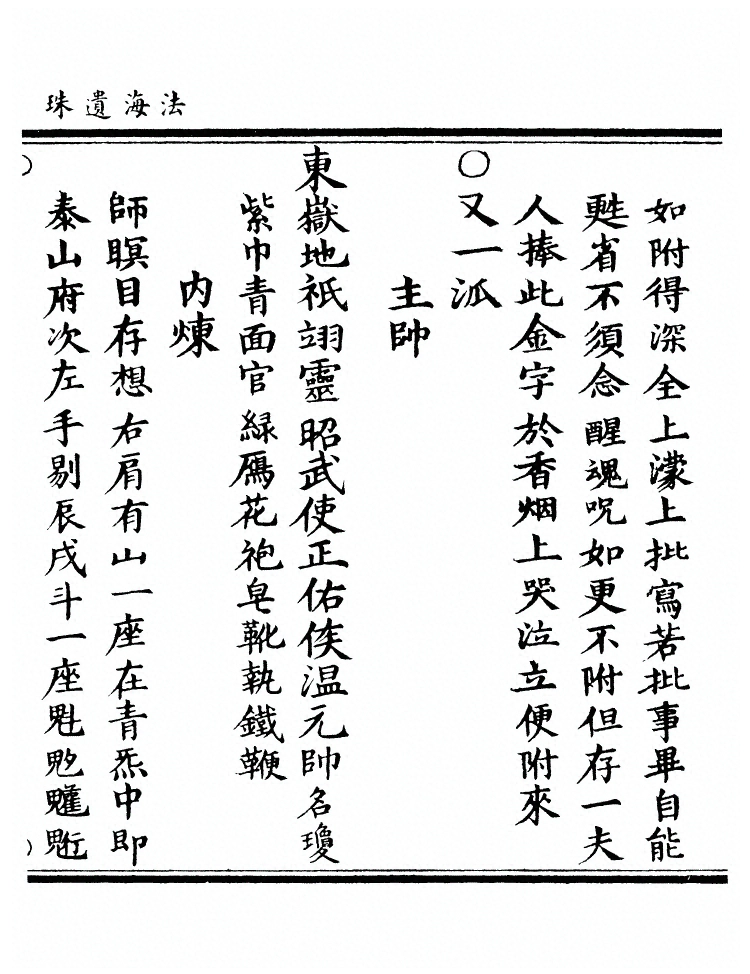 法海遺珠
如附得深全上濛上批寫若批事畢自能
甦省不須念醒魂呪如更不附但存一夫
人捧此金字於香烟上哭泣立便附來
○又一派
主帥
東嶽地祇翊靈昭武使正佑侯溫元帥名瓊
紫巾青面官緑鴈花袍皂靴執鐵鞭
内煉
師瞑目存想右肩有山一座在青炁中即
泰山府次左手剔辰戌斗一座魁𩲃䰢魓